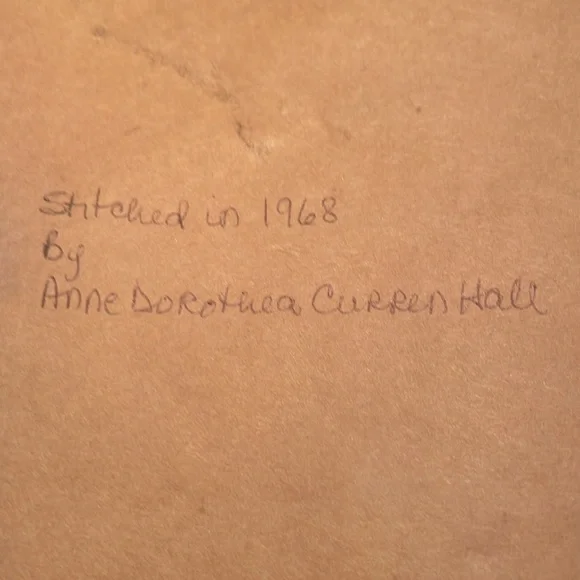 Stitched in 1968
By
Anne Dorothea Curren Hall